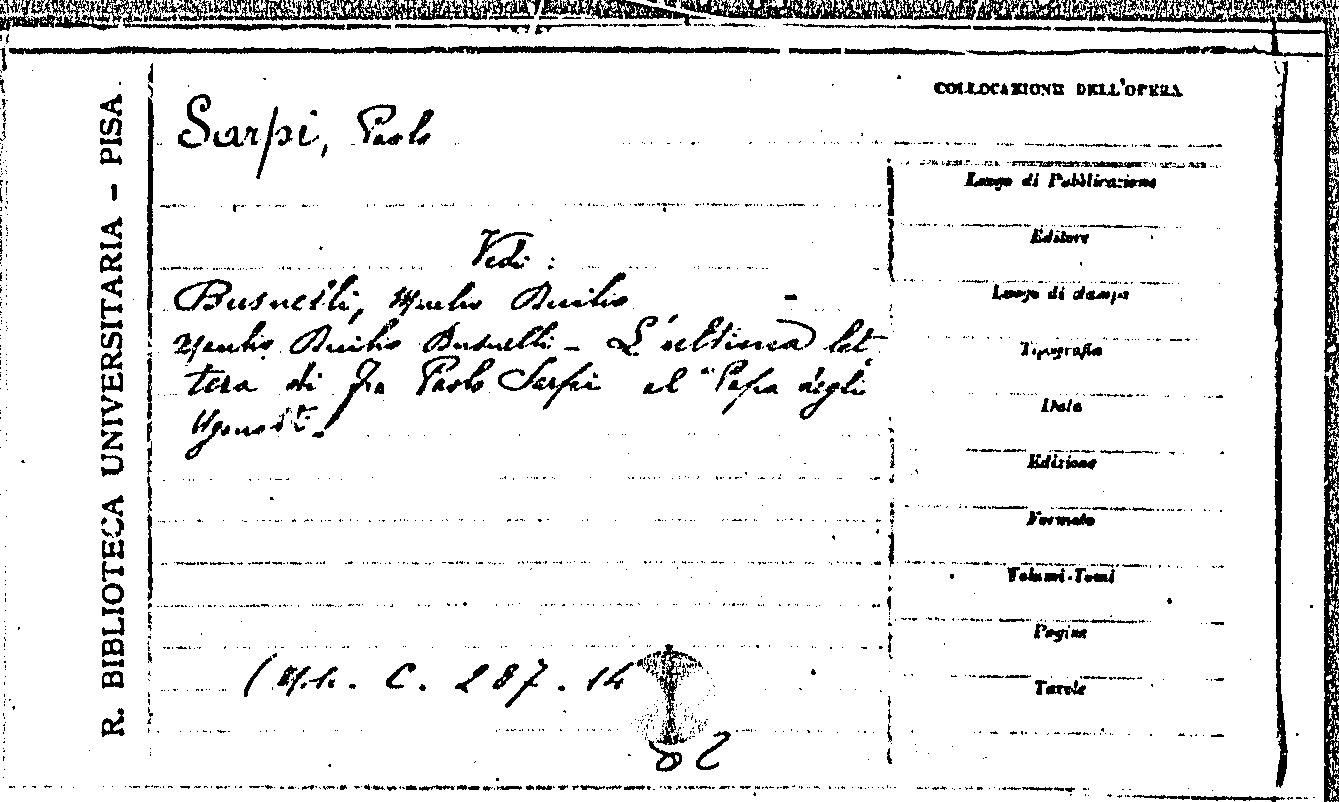 R. BIBLIOTECA UNIVERSITARIA - PISA
Sarpi, Paolo
Vedi:
Busnelli, Manlio Duilio
Manlio Duilio Busnelli - L'ultima let-
tera di Fra Paolo Sarpi al "Papa degli
Ugonotti.
C. 287. 14
COLLOCAZIONE DELL'OPERA
Luogo di Pubblicazione
Editore
Luogo di stampa
Tipografia
Data
Edizione
Formato
Volumi-Tomi
Pagine
Tavole